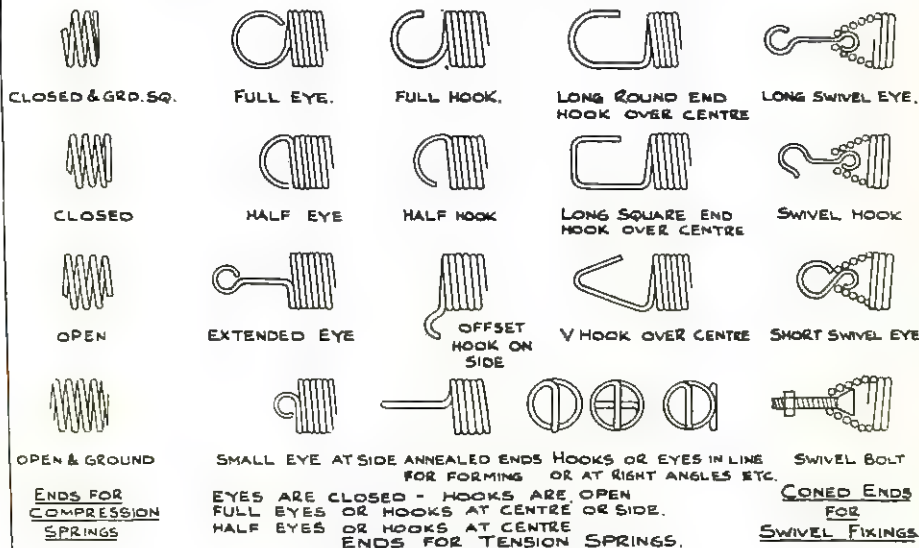 CLOSED & GRD. SQ.
FULL EYE.
FULL HOOK.
LONG ROUND END
HOOK OVER CENTRE
LONG SWIVEL EYE.
CLOSED
HALF EYE
HALF HOOK
LONG SQUARE END
HOOK OVER CENTRE
SWIVEL HOOK
OPEN
EXTENDED EYE
OFFSET
HOOK ON
SIDE
V HOOK OVER CENTRE
SHORT SWIVEL EYE
OPEN & GROUND
SMALL EYE AT SIDE
ANNEALED ENDS
FOR FORMING
HOOKS OR EYES IN LINE
OR AT RIGHT ANGLES ETC.
SWIVEL BOLT
ENDS FOR
COMPRESSION
SPRINGS
EYES ARE CLOSED - HOOKS ARE OPEN
FULL EYES OR HOOKS AT CENTRE OR SIDE.
HALF EYES OR HOOKS AT CENTRE
ENDS FOR TENSION SPRINGS.
CONED ENDS
FOR
SWIVEL FIXINGS